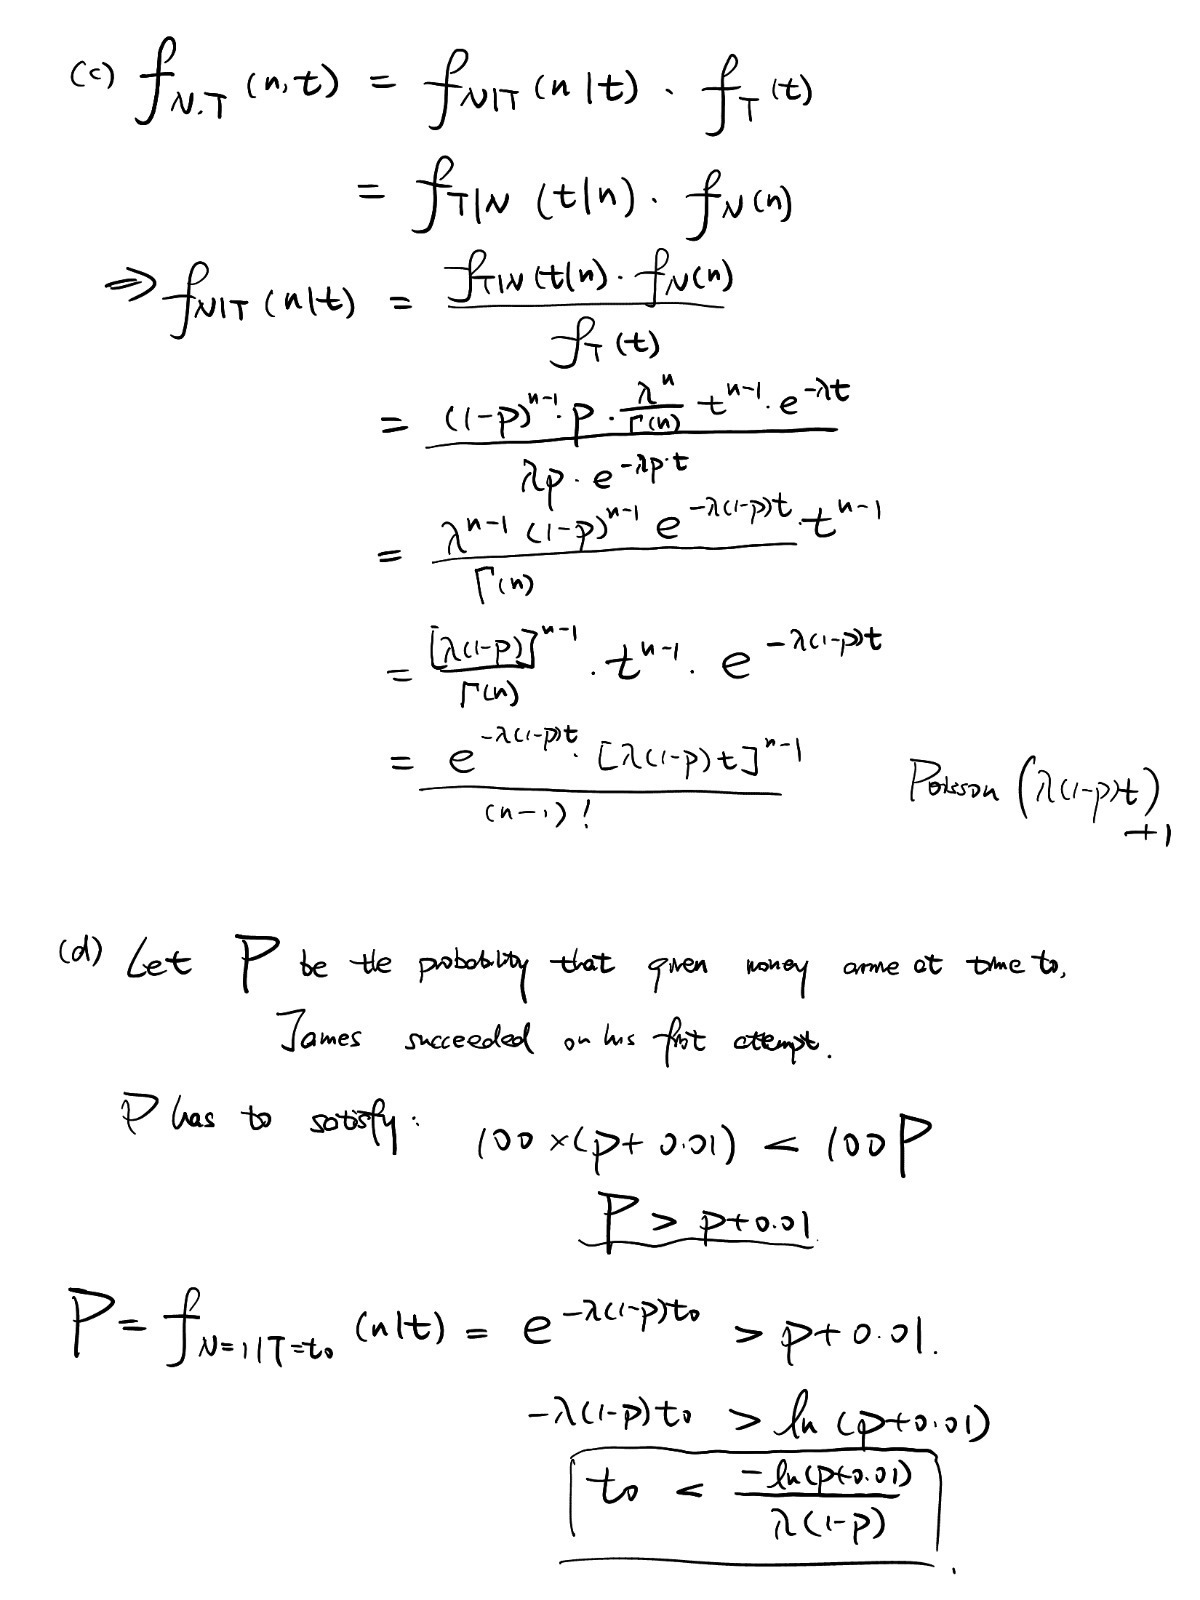 (c) f_{N.T} (n,t) = f_{N|T} (n|t) · f_T (t)
= f_{T|N} (t|n) · f_N (n)
⇒ f_{N|T} (n|t) = \frac{f_{T|N} (t|n) · f_N (n)}{f_T (t)}
= \frac{(1-p)^{n-1} · p · \frac{λ^n}{Γ(n)} t^{n-1} · e^{-λt}}{λp · e^{-λp·t}}
= \frac{λ^{n-1} (1-p)^{n-1} e^{-λ(1-p)t} · t^{n-1}}{Γ(n)}
= \frac{[λ(1-p)]^{n-1}}{Γ(n)} · t^{n-1} · e^{-λ(1-p)t}
= \frac{e^{-λ(1-p)t} · [λ(1-p)t]^{n-1}}{(n-1)!} Poisson (λ(1-p)t) +1
(d) Let P be the probability that given money arrive at time t_0,
James succeeded on his first attempt.
P has to satisfy:
100 × (p + 0.01) < 100P
P > p+0.01
P = f_{N=1|T=t_0} (n|t) = e^{-λ(1-p)t_0} > p + 0.01.
-λ(1-p)t_0 > ln (p+0.01)
t_0 < \frac{-ln(p+0.01)}{λ(1-p)}.